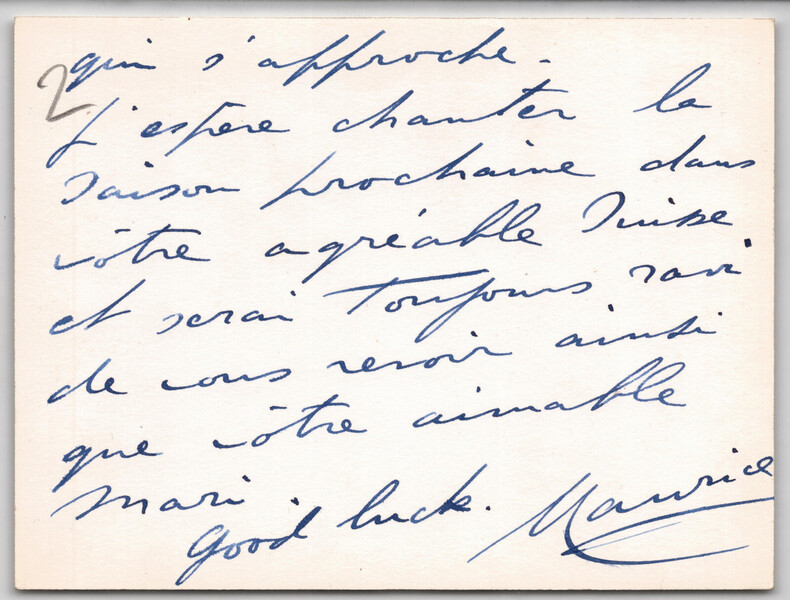 2
qui s'approche.
J'espère chanter la
saison prochaine dans
vôtre agréable Suisse
et serai toujours ravi
de vous revoir ainsi
que vôtre aimable
mari.
Good luck. Maurice